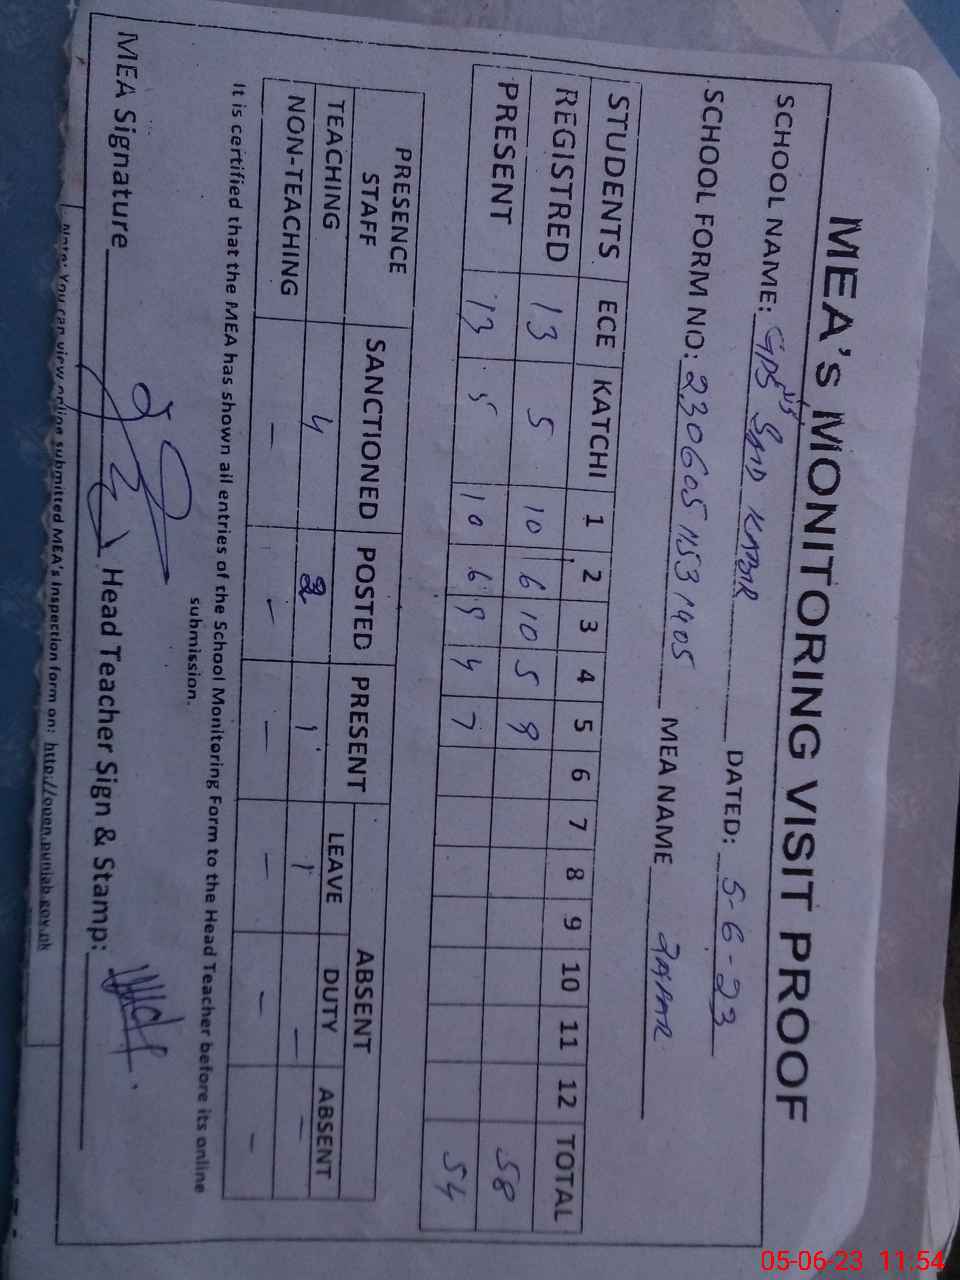 MEA's MONITORING VISIT PROOF
SCHOOL NAME: GPS KABIR DATED: 5-6-23
SCHOOL FORM NO: 2306051531405 MEA NAME ZAFAR
STUDENTS ECE KATCHI 1 2 3 4 5 6 7 8 9 10 11 12 TOTAL
REGISTRED 13 5 10 6 10 5 9 58
PRESENT 13 5 10 6 9 4 7 54
PRESENCE STAFF SANCTIONED POSTED PRESENT ABSENT
LEAVE DUTY ABSENT
TEACHING 4 2 1 1 — —
NON-TEACHING — — — — — —
It is certified that the MEA has shown all entries of the School Monitoring Form to the Head Teacher before its online
submission.
MEA Signature Head Teacher Sign & Stamp:
Note: You can view online submitted MEA's Inspection form on: http://open.punjab.gov.pk
05-06-23 11:54